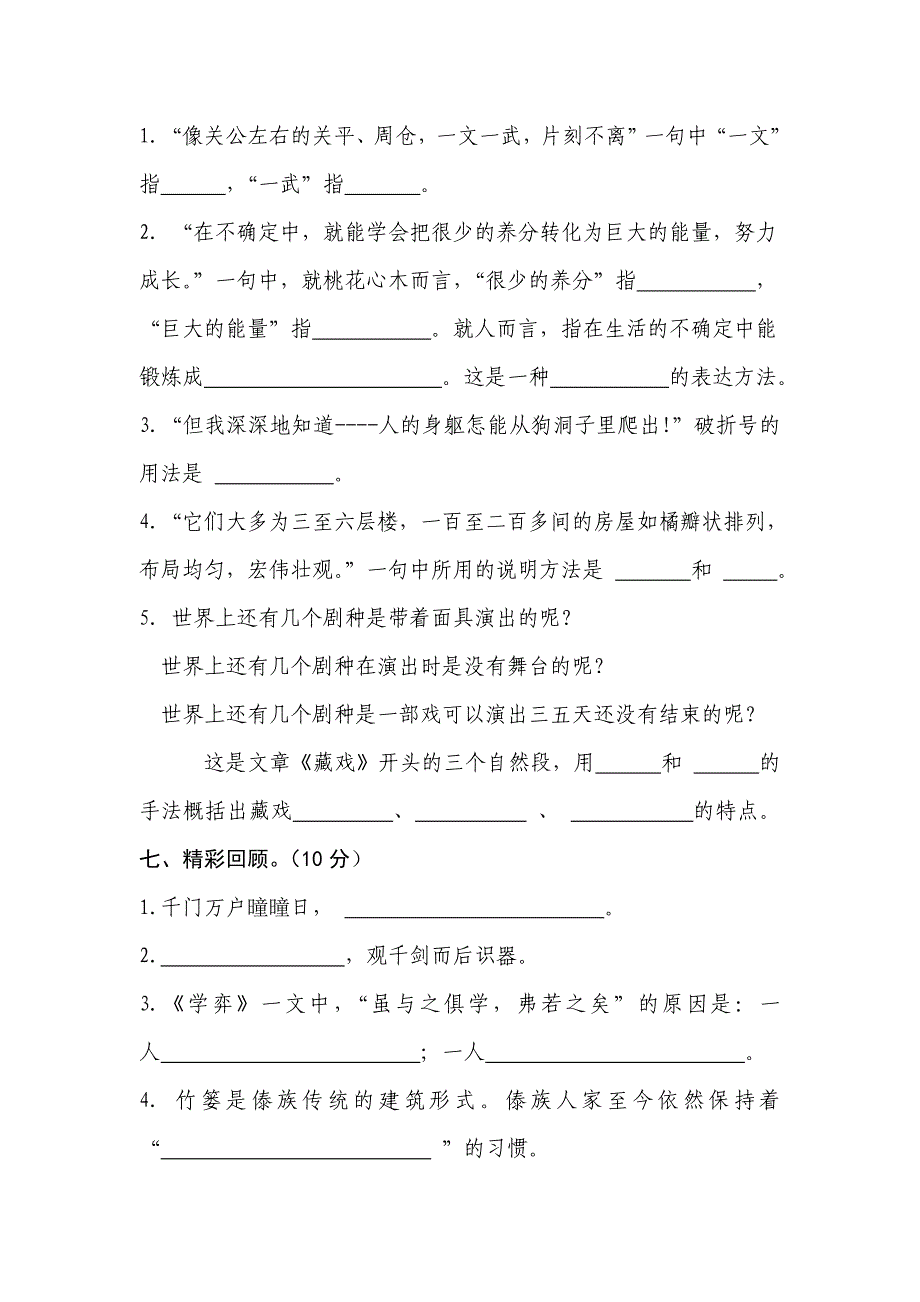 1. “像关公左右的关平、周仓，一文一武，片刻不离”一句中“一文”
指______，“一武”指_______。
2. “在不确定中，就能学会把很少的养分转化为巨大的能量，努力
成长。”一句中，就桃花心木而言，“很少的养分”指___________，
“巨大的能量”指___________。就人而言，指在生活的不确定中能
锻炼成______________________。这是一种___________的表达方法。
3. “但我深深地知道----人的身躯怎能从狗洞子里爬出！”破折号的
用法是 ___________。
4. “它们大多为三至六层楼，一百至二百多间的房屋如橘瓣状排列，
布局均匀，宏伟壮观。”一句中所用的说明方法是 _______和 _____。
5. 世界上还有几个剧种是带着面具演出的呢？
世界上还有几个剧种在演出时是没有舞台的呢？
世界上还有几个剧种是一部戏可以演出三五天还没有结束的呢？
这是文章《藏戏》开头的三个自然段，用______和 ______的
手法概括出藏戏_________、__________ 、 ___________的特点。
七、精彩回顾。（10分）
1.千门万户瞳瞳日， ________________________。
2._________________，观千剑而后识器。
3.《学弈》一文中，“虽与之俱学，弗若之矣”的原因是：一
人________________________；一人________________________。
4. 竹篓是傣族传统的建筑形式。傣族人家至今依然保持着
“_________________________ ”的习惯。